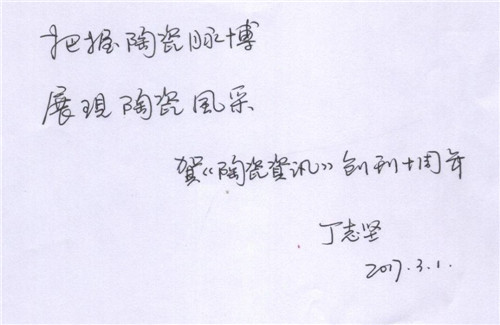 把握陶瓷脉搏
展現陶瓷風采
賀《陶瓷資讯》创刊十周年
丁志坚
2017.3.1.